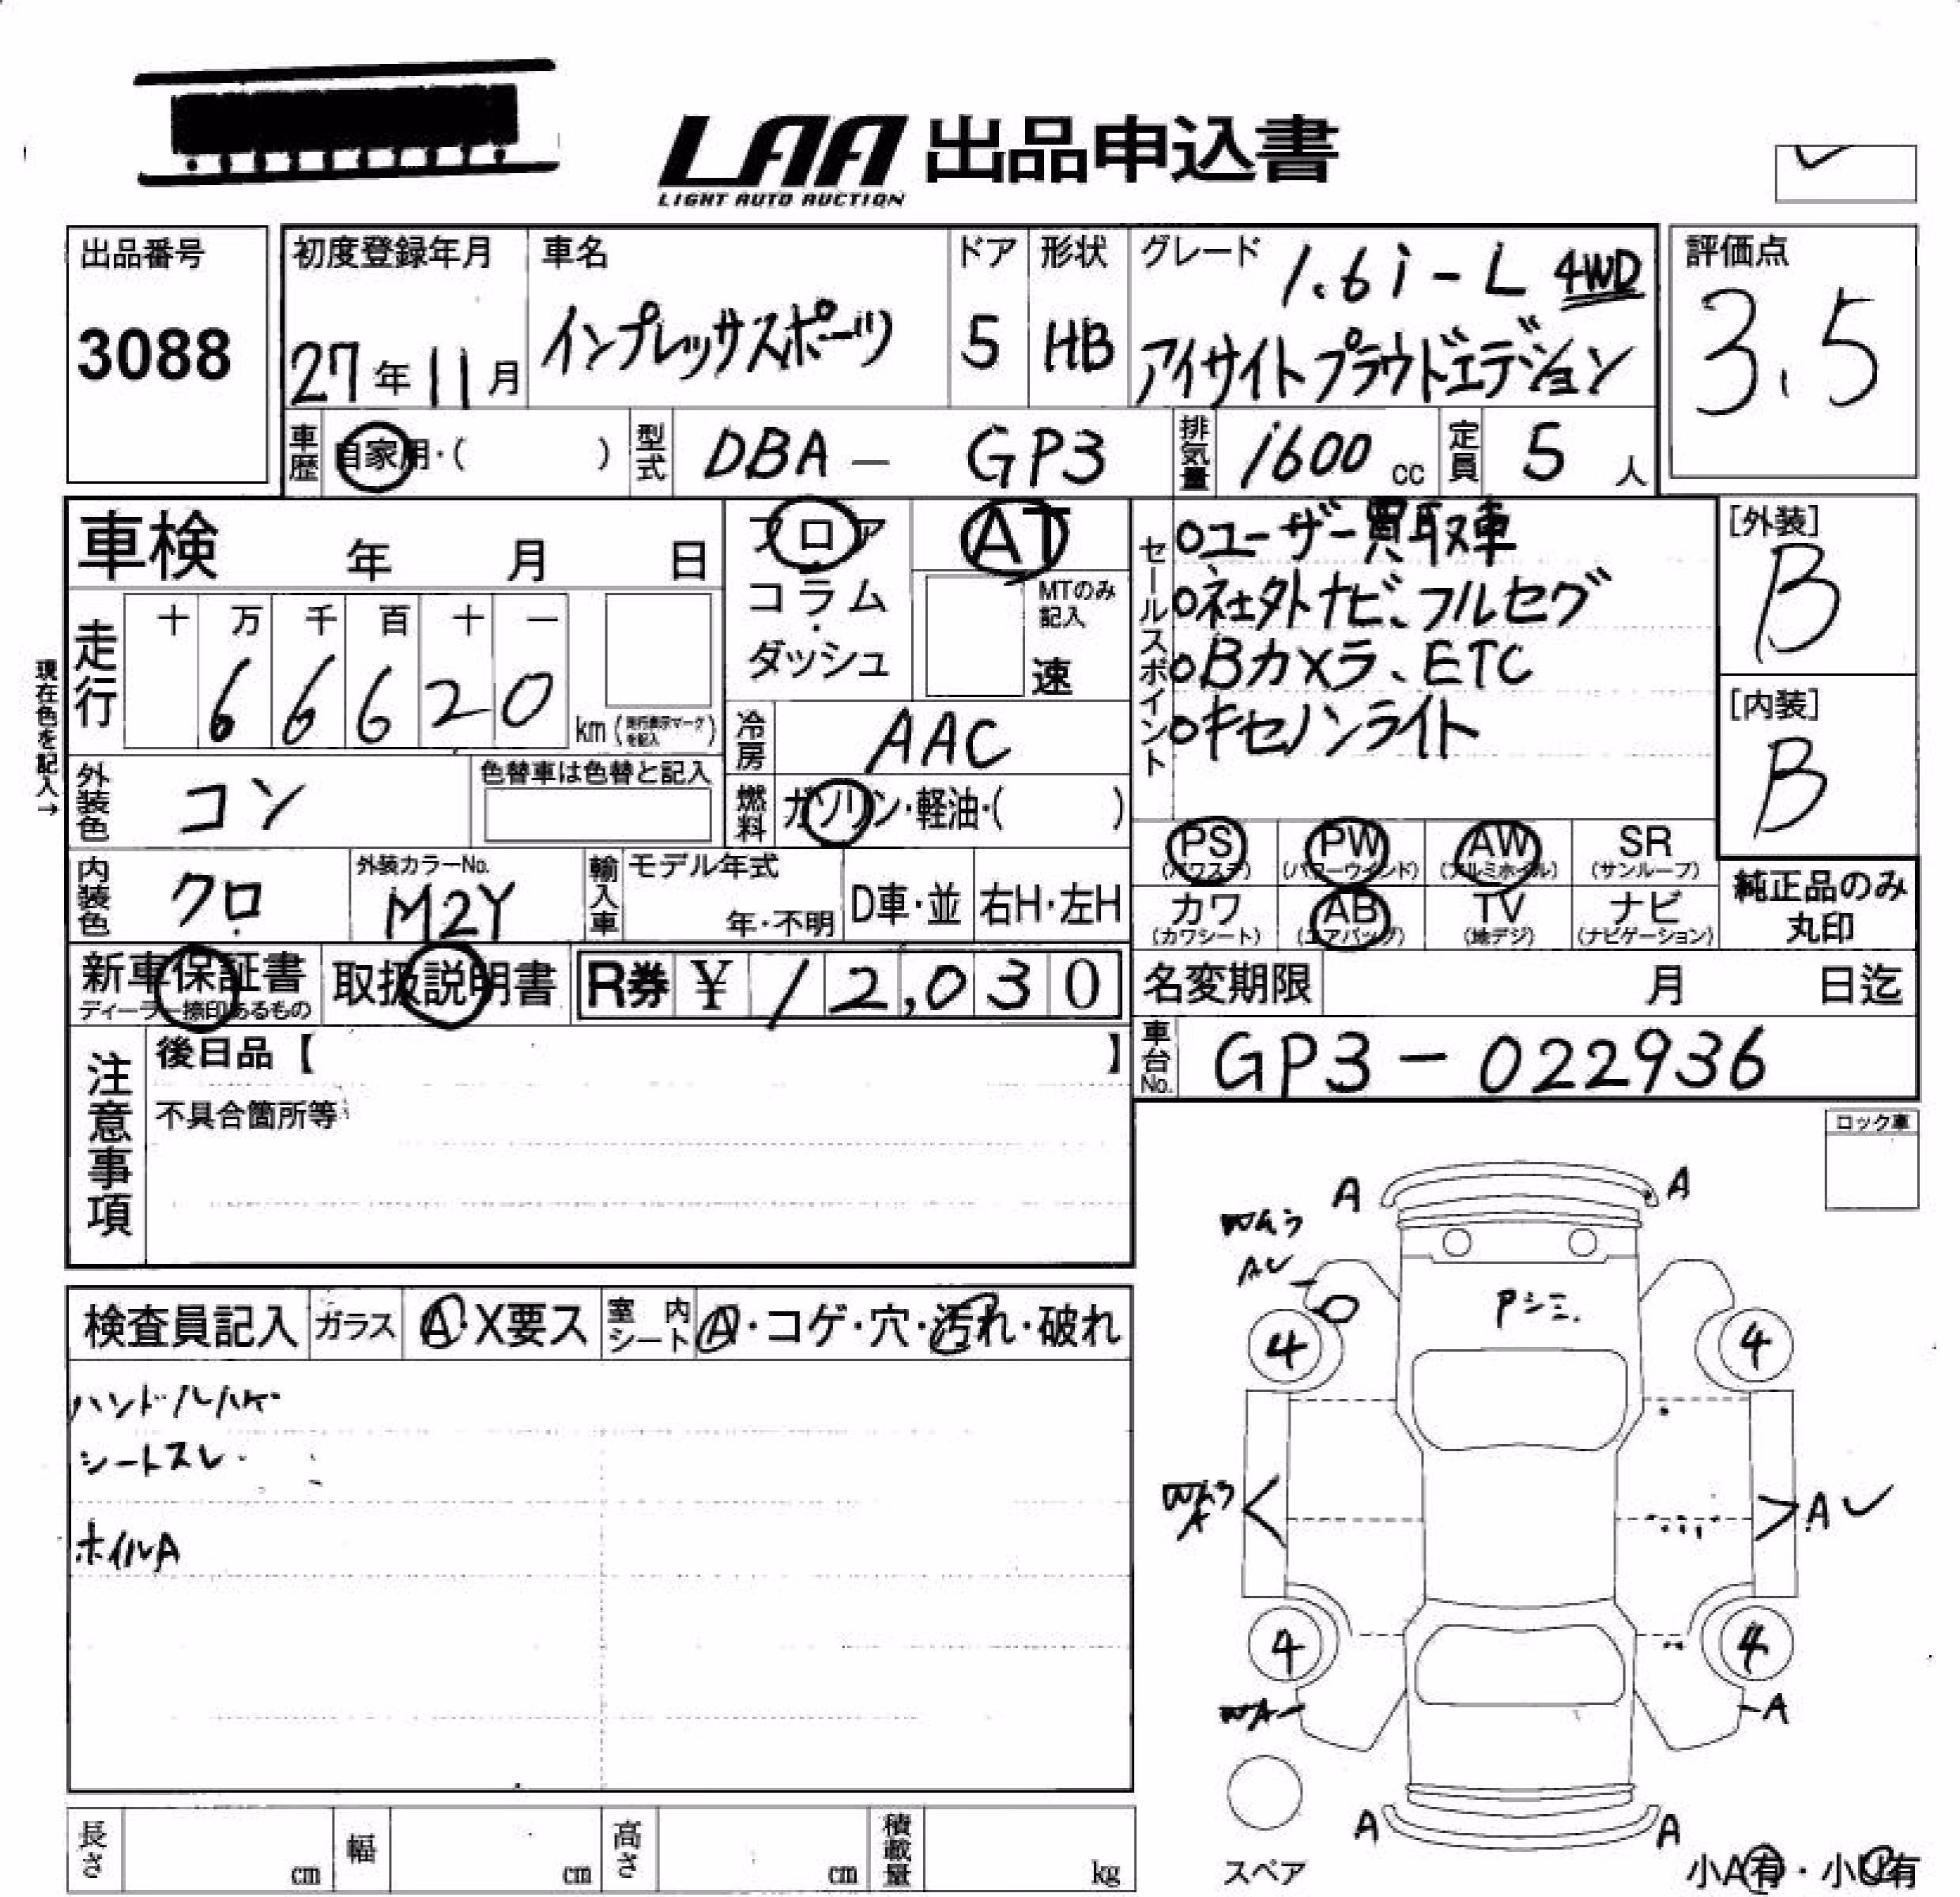 LAA 出品申込書
LIGHT AUTO AUCTION
出品番号
3088
初度登録年月
27年11月
車名
インプレッサスポーツ
ドア
5
形状
HB
グレード
1.6i-L 4WD
アイサイトプラウドエディション
評価点
3.5
車歴
自家用・( )
型式
DBA - GP3
排気量
1600 cc
定員
5 人
車検 年 月 日
走行
十 万 千 百 十 一
6 6 6 2 0
km (走行表示マークを記入)
現在色を記入→
外装色
コン
色替車は色替と記入
内装色
クロ
外装カラーNo.
M2Y
輸入車
モデル年式
年・不明
D車・並
右H・左H
フロア
・
コラム
・
ダッシュ
AT
MTのみ記入
速
冷房
AAC
燃料
ガソリン・軽油・( )
セールスポイント
○ユーザー買取車
○社外ナビ、フルセグ
○Bカメラ、ETC
○キセノンライト
[外装]
B
[内装]
B
PS (パワステ)
PW (パワーウインド)
AW (アルミホイル)
SR (サンルーフ)
カワ (カワシート)
AB (エアバッグ)
TV (地デジ)
ナビ (ナビゲーション)
純正品のみ
丸印
新車保証書
ディーラー捺印あるもの
取扱説明書
R券 ¥ 12,030
名変期限 月 日迄
車台No.
GP3-022936
注意事項
後日品【 】
不具合箇所等
ロック車
検査員記入
ガラス
A・X要ス
室内シート
A・コゲ・穴・汚れ・破れ
ハンドルハゲ
シートスレ
ホイルA
A
A
AU
Pシミ.
4
4
A
A
4
4
WA
A
A
A
スペア
小A有・小U有
長さ
cm
幅
cm
高さ
cm
積載量
kg